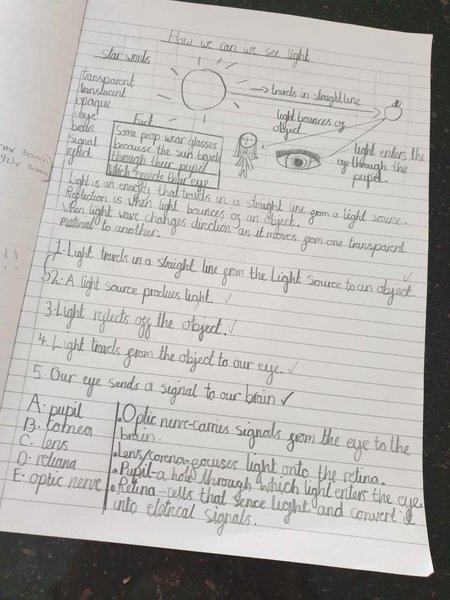 How we can we see light
star words
transparent
translucent
opaque
eye
brain
signal
reflect
→ travels in straight line
light bounces of
object.
light enters the
eye through the
pupil.
Fact
Some peop wear glasses
because the sun travels
through their pupil
which their eye
Light is an energy that travels in a straight line from a light source.
Reflection is when light bounces of an object.
when light wave changes direction as it moves from one transparent
material to another.
1. Light travels in a straight line from the Light source to an object.
2. A light source produces light.
3. Light reflects off the object.
4. Light travels from the object to our eye.
5. Our eye sends a signal to our brain
A. pupil
B. cornea
C. lens
D. retiana
E. optic nerve
• Optic nerve-carries signals from the eye to the
brain.
• Lens/corona-focuses light onto the retina.
• Pupil-a hole through which light enters the eye
• Retina-cells that sence light and convert it
into elctrical signals.